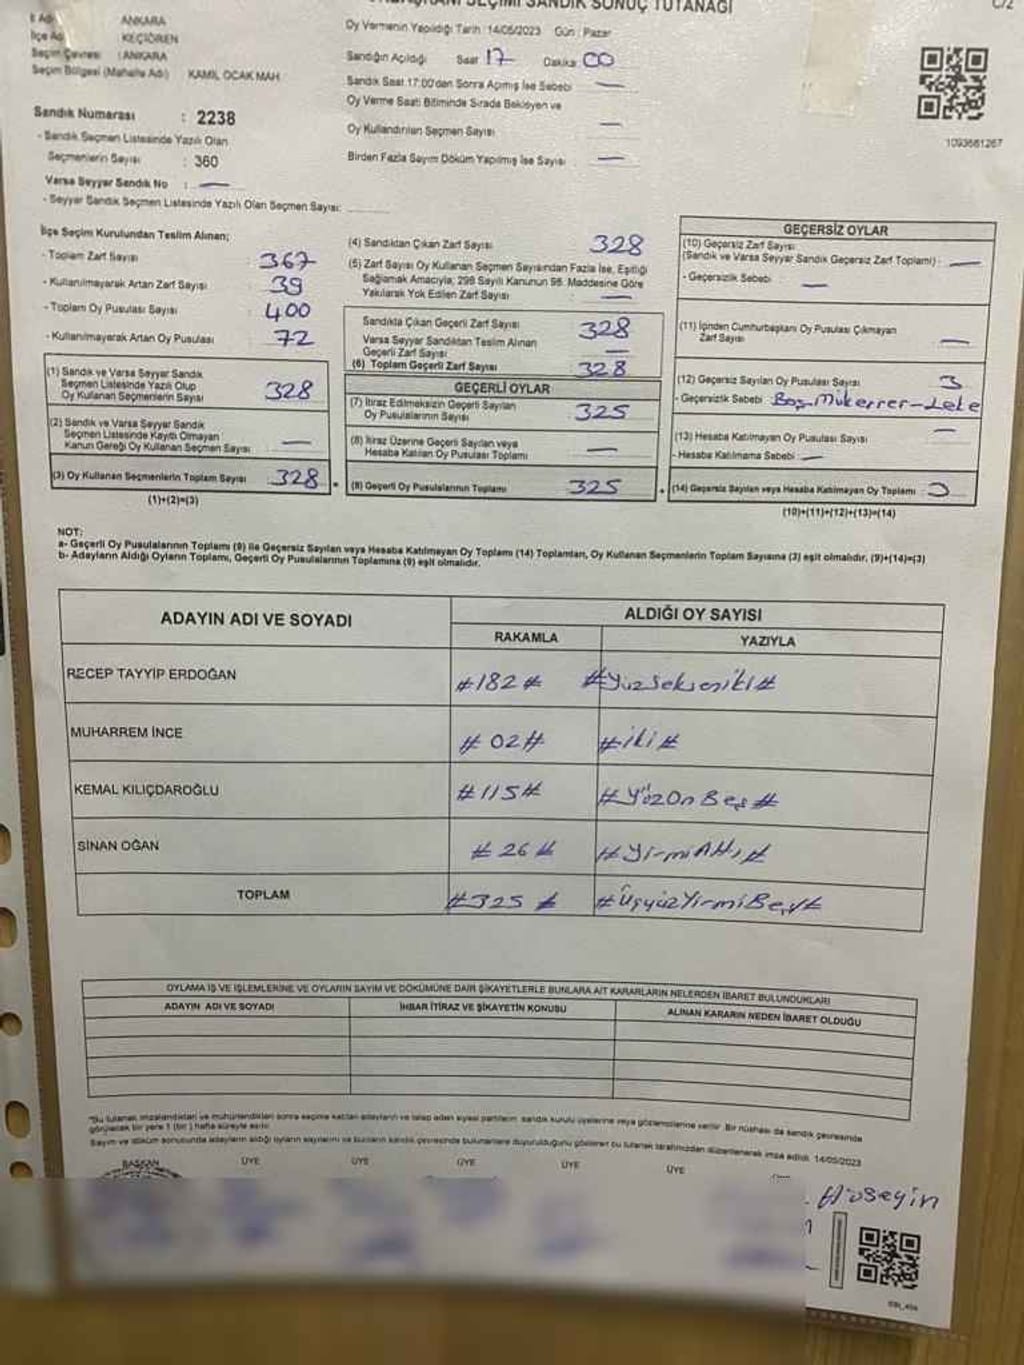 SEÇİMİ SANDIK SONUÇ TUTANAĞI
C/2
İl Adı ANKARA
İlçe Adı KEÇİÖREN
Seçim Çevresi : ANKARA
Seçim Bölgesi (Mahalle Adı) KAMİL OCAK MAH.
Sandık Numarası : 2238
- Sandık Seçmen Listesinde Yazılı Olan
Seçmenlerin Sayısı : 360
Varsa Seyyar Sandık No : —
- Seyyar Sandık Seçmen Listesinde Yazılı Olan Seçmen Sayısı:
Oy Vermenin Yapıldığı Tarih : 14/05/2023 Gün : Pazar
Sandığın Açıldığı Saat 17 Dakika 00
Sandık Saat 17:00'den Sonra Açılmış İse Sebebi —
Oy Verme Saati Bitiminde Sırada Bekleyen ve
Oy Kullandırılan Seçmen Sayısı —
Birden Fazla Sayım Döküm Yapılmış İse Sayısı —
1093681267
İlçe Seçim Kurulundan Teslim Alınan;
- Toplam Zarf Sayısı : 367
- Kullanılmayarak Artan Zarf Sayısı : 39
- Toplam Oy Pusulası Sayısı : 400
- Kullanılmayarak Artan Oy Pusulası : 72
(1) Sandık ve Varsa Seyyar Sandık
Seçmen Listesinde Yazılı Olup
Oy Kullanan Seçmenlerin Sayısı 328
(2) Sandık ve Varsa Seyyar Sandık
Seçmen Listesinde Kayıtlı Olmayan
Kanun Gereği Oy Kullanan Seçmen Sayısı —
(3) Oy Kullanan Seçmenlerin Toplam Sayısı 328
(1)+(2)=(3)
(4) Sandıktan Çıkan Zarf Sayısı 328
(5) Zarf Sayısı Oy Kullanan Seçmen Sayısından Fazla İse, Eşitliği
Sağlamak Amacıyla, 298 Sayılı Kanunun 98. Maddesine Göre
Yakılarak Yok Edilen Zarf Sayısı —
Sandıkta Çıkan Geçerli Zarf Sayısı 328
Varsa Seyyar Sandıktan Teslim Alınan
Geçerli Zarf Sayısı —
(6) Toplam Geçerli Zarf Sayısı 328
GEÇERLİ OYLAR
(7) İtiraz Edilmeksizin Geçerli Sayılan
Oy Pusulalarının Sayısı 325
(8) İtiraz Üzerine Geçerli Sayılan veya
Hesaba Katılan Oy Pusulası Toplamı —
(9) Geçerli Oy Pusulalarının Toplamı 325
GEÇERSİZ OYLAR
(10) Geçersiz Zarf Sayısı
(Sandık ve Varsa Seyyar Sandık Geçersiz Zarf Toplamı) : —
- Geçersizlik Sebebi : —
(11) İçinden Cumhurbaşkanı Oy Pusulası Çıkmayan
Zarf Sayısı —
(12) Geçersiz Sayılan Oy Pusulası Sayısı 3
- Geçersizlik Sebebi Boş-Mükerrer-Leke
(13) Hesaba Katılmayan Oy Pusulası Sayısı —
- Hesaba Katılmama Sebebi : —
(14) Geçersiz Sayılan veya Hesaba Katılmayan Oy Toplamı : 3
(10)+(11)+(12)+(13)=(14)
NOT:
a- Geçerli Oy Pusulalarının Toplamı (9) ile Geçersiz Sayılan veya Hesaba Katılmayan Oy Toplamı (14) Toplamları, Oy Kullanan Seçmenlerin Toplam Sayısına (3) eşit olmalıdır. (9)+(14)=(3)
b- Adayların Aldığı Oyların Toplamı, Geçerli Oy Pusulalarının Toplamına (9) eşit olmalıdır.
ADAYIN ADI VE SOYADI ALDIĞI OY SAYISI
RAKAMLA YAZIYLA
RECEP TAYYİP ERDOĞAN #182# #Yüzseksenİki#
MUHARREM İNCE #02# #iki#
KEMAL KILIÇDAROĞLU #115# #YüzOnBeş#
SİNAN OĞAN #26# #YirmiAltı#
TOPLAM #325# #ÜçyüzYirmiBeş#
OYLAMA İŞ VE İŞLEMLERİNE VE OYLARIN SAYIM VE DÖKÜMÜNE DAİR ŞİKAYETLERLE BUNLARA AİT KARARLARIN NELERDEN İBARET BULUNDUKLARI
ADAYIN ADI VE SOYADI İHBAR İTİRAZ VE ŞİKAYETİN KONUSU ALINAN KARARIN NEDEN İBARET OLDUĞU
"Bu tutanak imzalandıktan ve mühürlendikten sonra seçime katılan adayların ve talep eden siyasi partilerin sandık kurulu üyelerine veya gözlemcilerine verilir. Bir nüshası da sandık çevresinde
görülecek bir yere 1 (bir) hafta süreyle asılır.
Sayım ve döküm sonucunda adayların aldığı oyların sayılarını ve bunların sandık çevresinde bulunanlara duyurulduğunu gösteren bu tutanak tarafımızdan düzenlenerek imza edildi. 14/05/2023
BAŞKAN ÜYE ÜYE ÜYE ÜYE ÜYE
Hüseyin